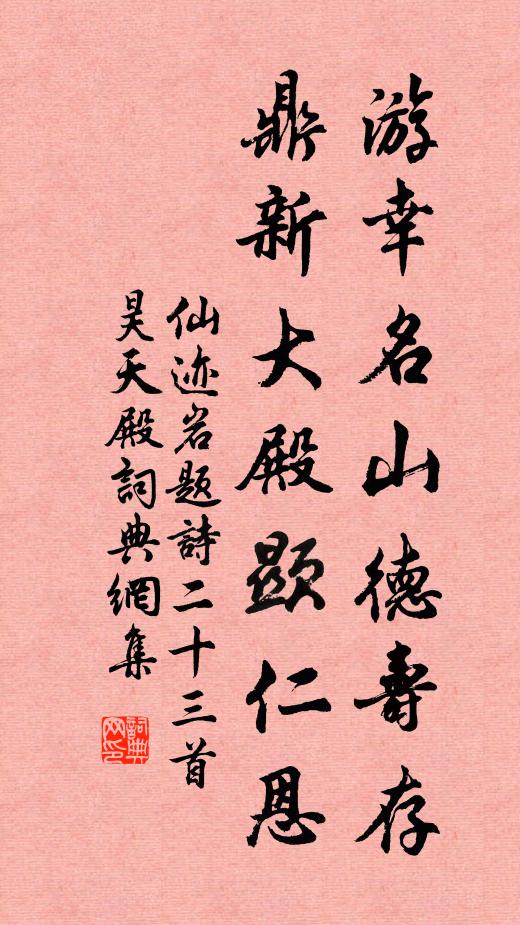 游幸名山德壽存
鼎新大殿顯仁恩
仙迹岩题詩二十三首
昊天殿詞典網集
詞典網印